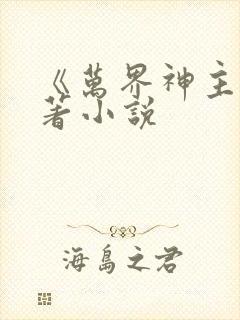 《萬界神主
著小說
海島之君